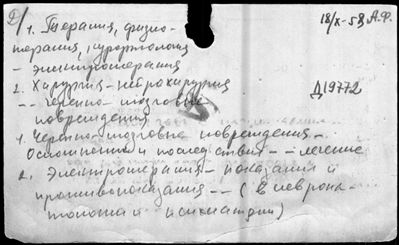 2/ 1. Терапия, физио- 18/X-58, А.Ф.
терапия, курортология
– электротерапия
2. Хирургия – нейрохирургия Д19772
-- черепно-мозговые
повреждения
1. Черепно-мозговые повреждения –
Осложнения и последствия -- лечение
2. Электротерапия – показания и
противопоказания -- (в невропа-
тологии и психиатрии)